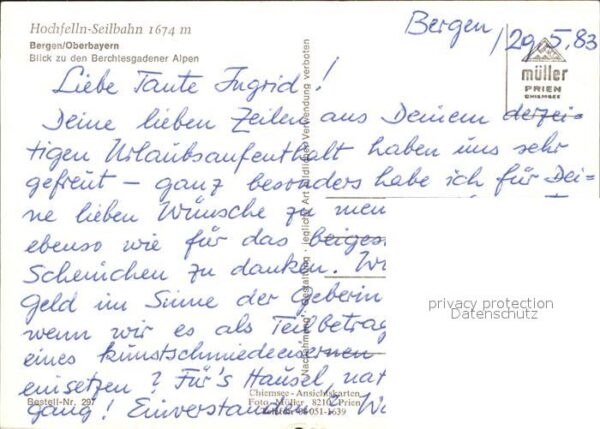 Hochfelln-Seilbahn 1674 m
Bergen/Oberbayern
Blick zu den Berchtesgadener Alpen
Bergen, 29.5.83
müller
PRIEN
CHIEMSEE
Liebe Tante Ingrid!
Deine lieben Zeilen aus Deinem derzei-
tigen Urlaubsaufenthalt haben uns sehr
gefreut – ganz besonders habe ich für Dei-
ne lieben Wünsche zu mei
ebenso wie für das beiges
Scheinchen zu danken. Wi
Geld im Sinne der Geberin
wenn wir es als Teilbetrag
eines kunstschmiedeeisernen
einsetzen? Für's Häusel, nat
gang! Einverstanden? Wi
Nachahmung - Gestaltung - jegliche Art bildlicher Verwendung verboten
privacy protection
Datenschutz
Bestell-Nr. 297
Chiemsee-Ansichtskarten
Foto Müller, 8210 Prien
051-1639